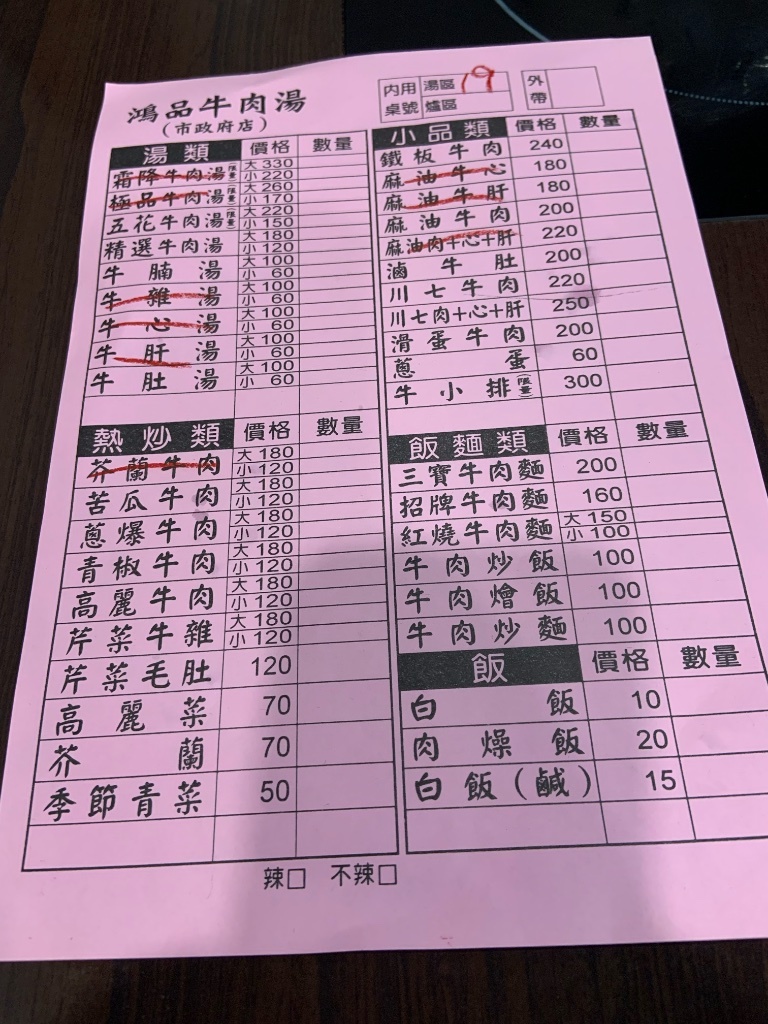 鴻品牛肉湯
(市政府店)
內用桌號 湯區 19 爐區
外帶
湯類 價格 數量
霜降牛肉湯(限量) 大 330 小 220
極品牛肉湯(限量) 大 260 小 170
五花牛肉湯(限量) 大 220 小 150
精選牛肉湯 大 180 小 120
牛腩湯 大 100 小 60
牛雜湯 大 100 小 60
牛心湯 大 100 小 60
牛肝湯 大 100 小 60
牛肚湯 大 100 小 60
熱炒類 價格 數量
芥蘭牛肉 大 180 小 120
苦瓜牛肉 大 180 小 120
蔥爆牛肉 大 180 小 120
青椒牛肉 大 180 小 120
高麗牛肉 大 180 小 120
芹菜牛雜 大 180 小 120
芹菜毛肚 120
高麗菜 70
芥蘭 70
季節青菜 50
小品類 價格 數量
鐵板牛肉 240
麻油牛心 180
麻油牛肝 180
麻油牛肉 200
麻油肉+心+肝 220
滷牛肚 200
川七牛肉 220
川七肉+心+肝 250
滑蛋牛肉 200
蔥蛋 60
牛小排(限量) 300
飯麵類 價格 數量
三寶牛肉麵 200
招牌牛肉麵 160
紅燒牛肉麵 大 150 小 100
牛肉炒飯 100
牛肉燴飯 100
牛肉炒麵 100
飯 價格 數量
白飯 10
肉燥飯 20
白飯(鹹) 15
辣□ 不辣□